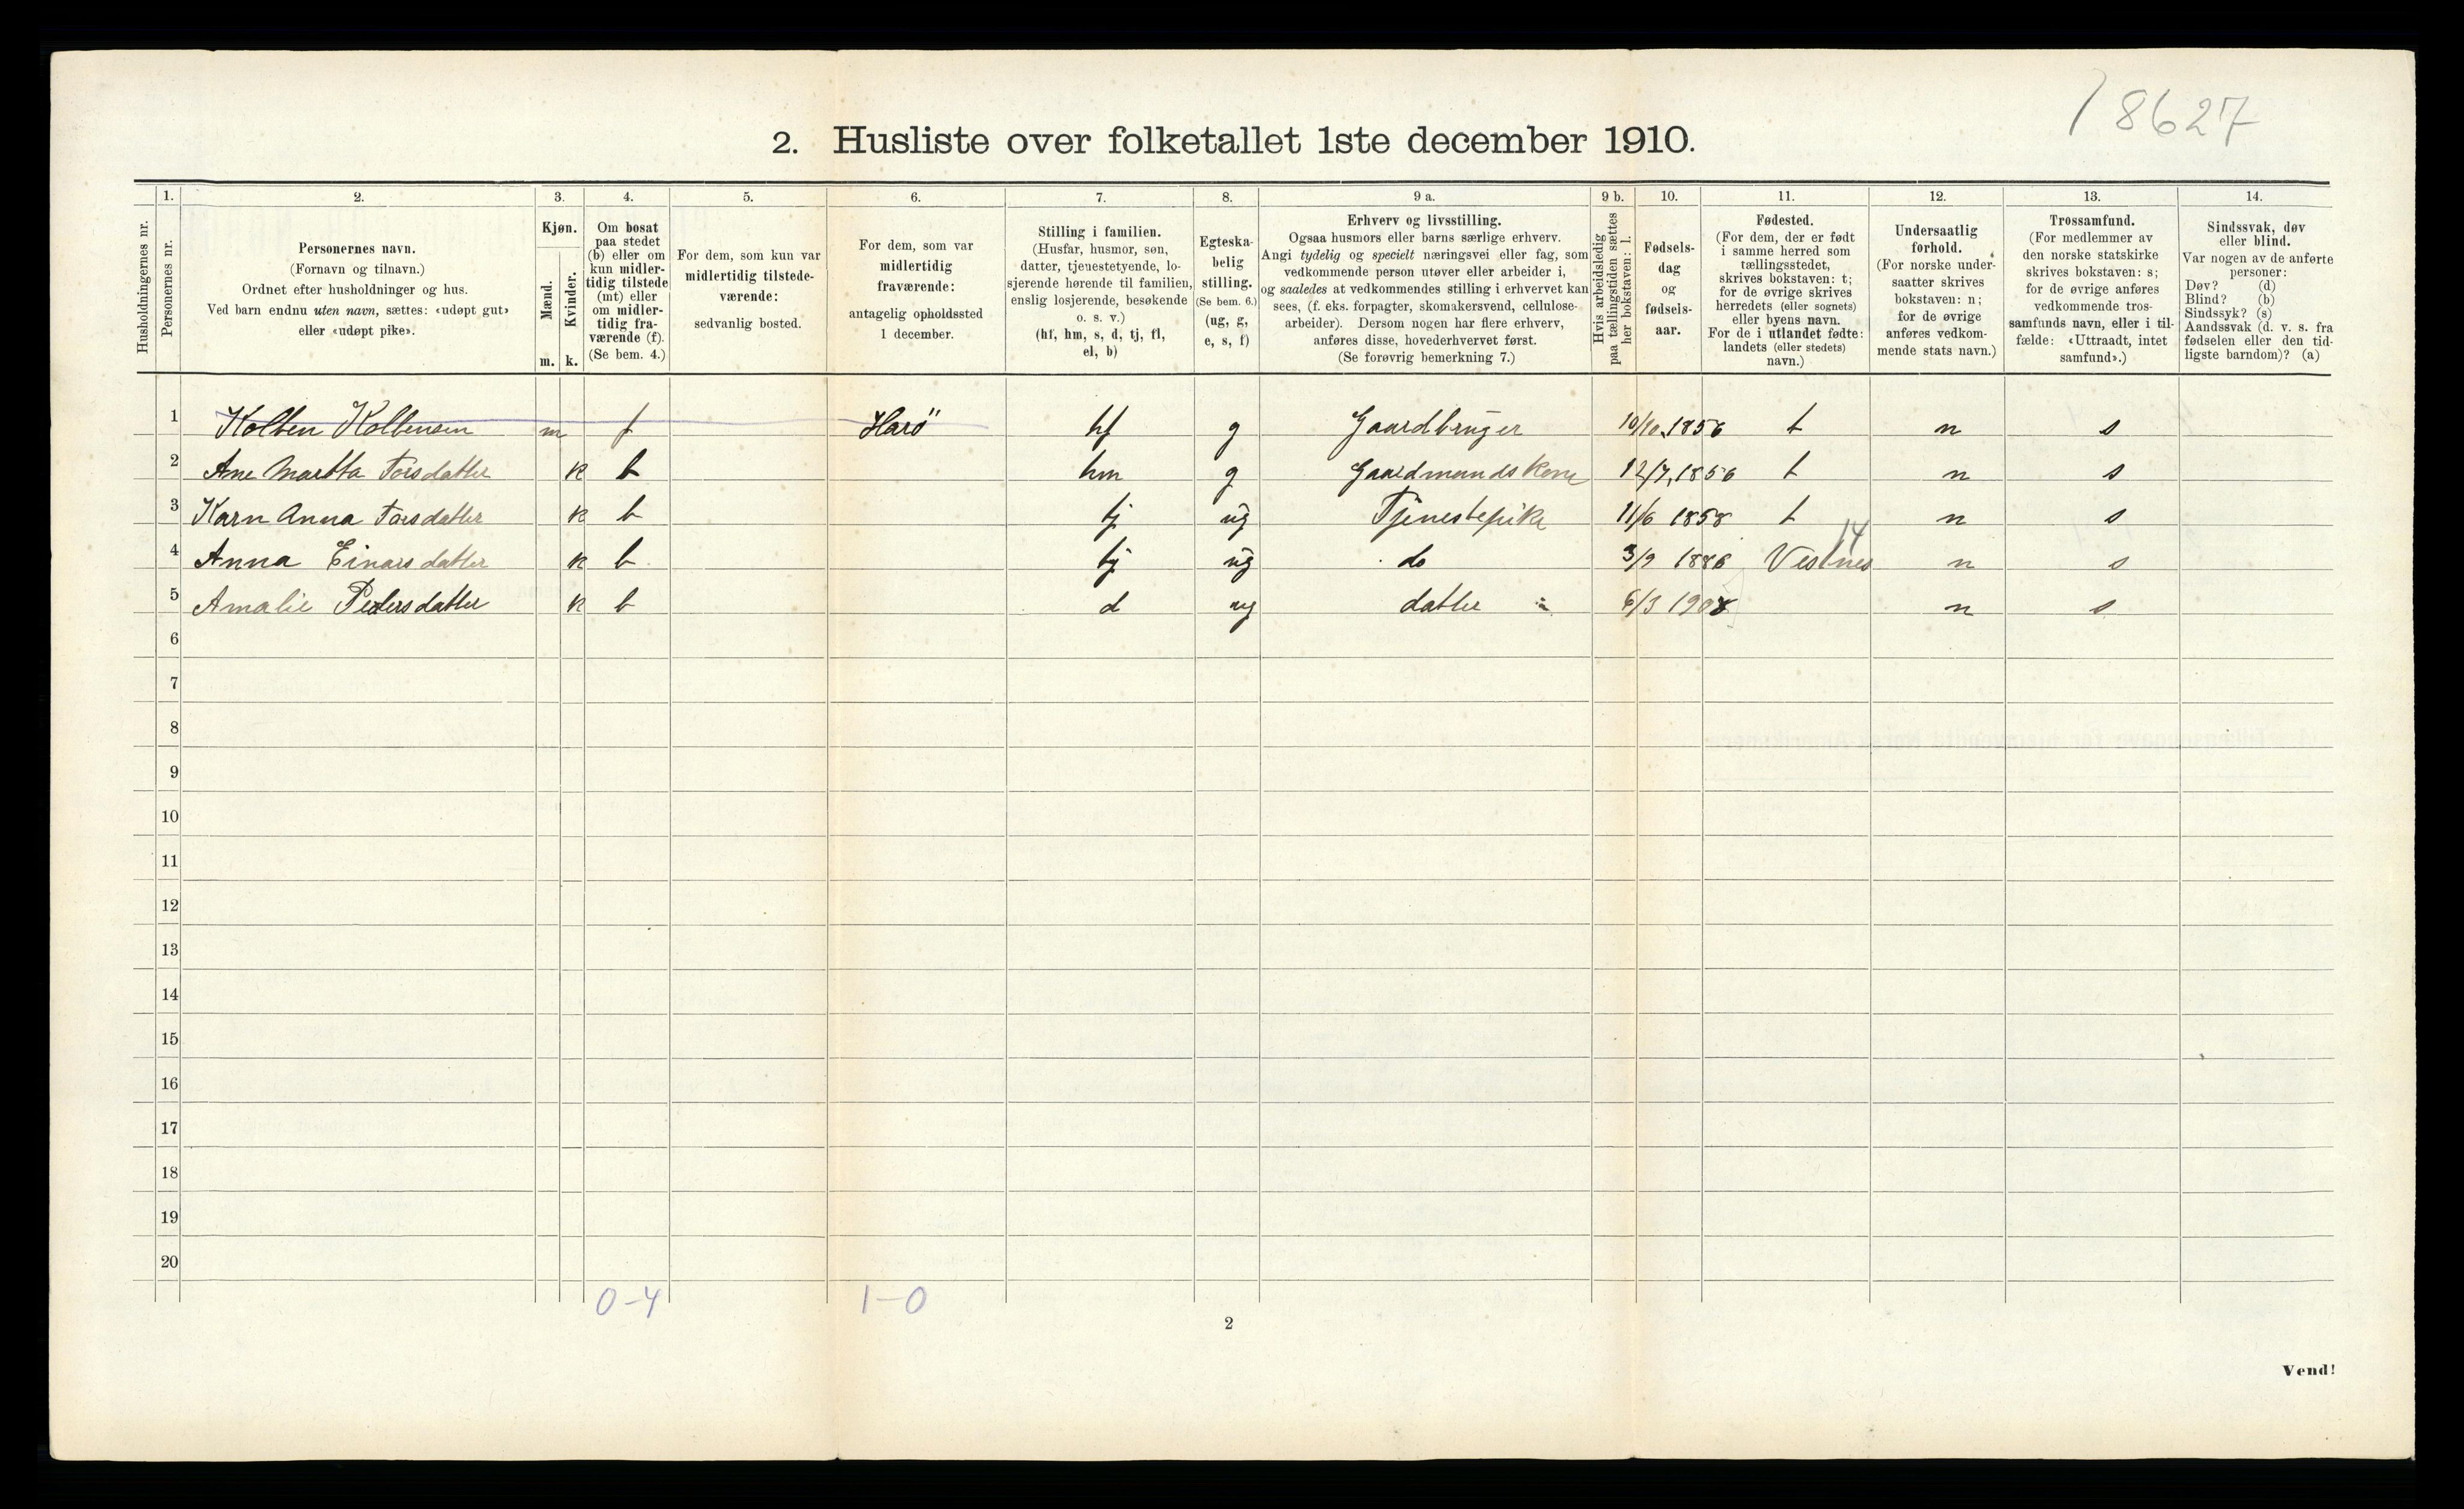 18627
2. Husliste over folketallet 1ste december 1910.
1. 2. 3. 4. 5. 6. 7. 8. 9 a. 9 b. 10. 11. 12. 13. 14.
Husholdningernes nr.
Personernes nr.
Personernes navn.
(Fornavn og tilnavn.)
Ordnet efter husholdninger og hus.
Ved barn endnu uten navn, sættes: «udøpt gut»
eller «udøpt pike».
Kjøn.
Mænd.
Kvinder.
m. k.
Om bosat
paa stedet
(b) eller om
kun midler-
tidig tilstede
(mt) eller
om midler-
tidig fra-
værende (f).
(Se bem. 4.)
For dem, som kun var
midlertidig tilstede-
værende:
sedvanlig bosted.
For dem, som var
midlertidig
fraværende:
antagelig opholdssted
1 december.
Stilling i familien.
(Husfar, husmor, søn,
datter, tjenestetyende, lo-
sjerende hørende til familien,
enslig losjerende, besøkende
o. s. v.)
(hf, hm, s, d, tj, fl,
el, b)
Egteska-
belig
stilling.
(Se bem. 6.)
(ug, g,
e, s, f)
Erhverv og livsstilling.
Ogsaa husmors eller barns særlige erhverv.
Angi tydelig og specielt næringsvei eller fag, som
vedkommende person utøver eller arbeider i,
og saaledes at vedkommendes stilling i erhvervet kan
sees, (f. eks. forpagter, skomakersvend, cellulose-
arbeider). Dersom nogen har flere erhverv,
anføres disse, hovederhvervet først.
(Se forøvrig bemerkning 7.)
Hvis arbeidsledig
paa tællingstiden sættes
her bokstaven: l.
Fødsels-
dag
og
fødsels-
aar.
Fødested.
(For dem, der er født
i samme herred som
tællingsstedet,
skrives bokstaven: t;
for de øvrige skrives
herredets (eller sognets)
eller byens navn.
For de i utlandet fødte:
landets (eller stedets)
navn.)
Undersaatlig
forhold.
(For norske under-
saatter skrives
bokstaven: n;
for de øvrige
anføres vedkom-
mende stats navn.)
Trossamfund.
(For medlemmer av
den norske statskirke
skrives bokstaven: s;
for de øvrige anføres
vedkommende tros-
samfunds navn, eller i til-
fælde: «Uttraadt, intet
samfund».)
Sindssvak, døv
eller blind.
Var nogen av de anførte
personer:
Døv? (d)
Blind? (b)
Sindssyk? (s)
Aandssvak (d. v. s. fra
fødselen eller den tid-
ligste barndom)? (a)
1 Kolben Kolbensen m f Harö hf g Gaardbruger 10/10 1856 t n s
2 Ane Martta Torsdatter k b hm g Gaardmands Kone 12/7, 1856 t n s
3 Karn Anna Torsdatter k b tj ug Tjenestepike 11/6 1858 t n s
14
4 Anna Einarsdatter k b tj ug do 3/9 1886 Vestnes n s
5 Amalie Pedersdatter k b d ug datter 6/3 1908 n s
6
7
8
9
10
11
12
13
14
15
16
17
18
19
20
0-4 1-0
2
Vend!